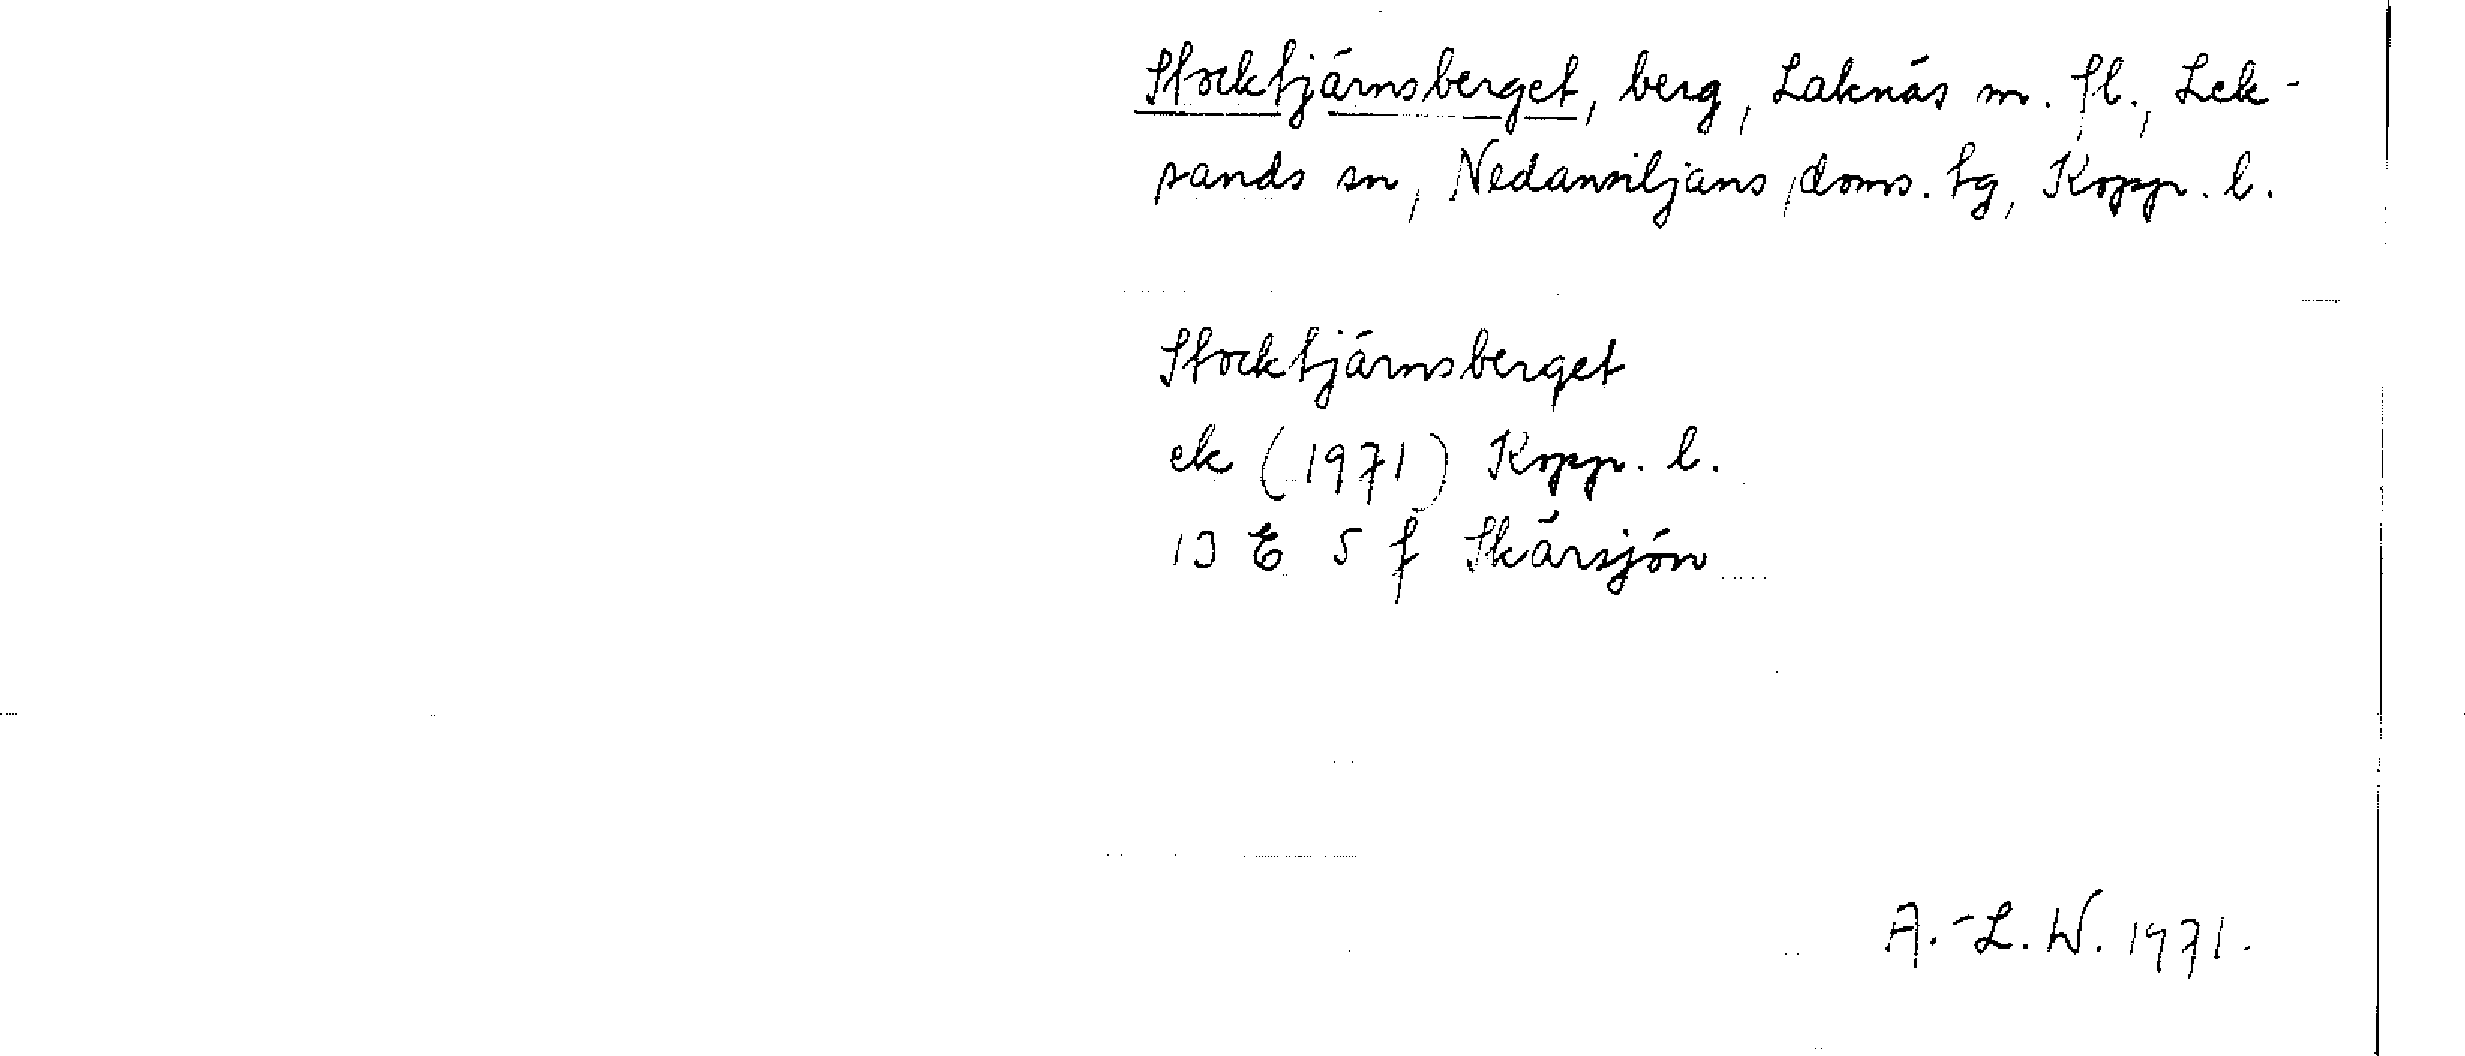 Stocktjärnsberget, berg, Laknäs m. fl., Lek-
sands sn, Nedansiljans doms. tg, Kopp. l.
Stocktjärnsberget
ek (1971) Kopp. l.
13 E 5 f Skärsjön
A.-L. W. 1971.